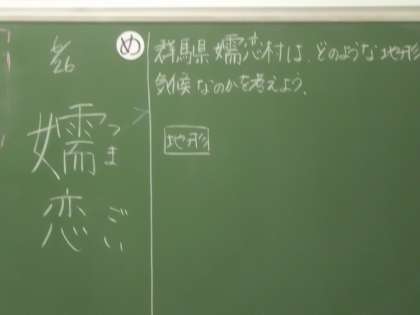 6/26
嬬恋
つま
ごい
め
群馬県嬬恋村は、どのような地形
気候なのかを考えよう。
地形